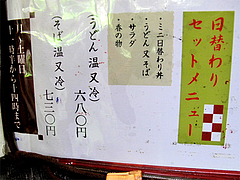 日替わり
セットメニュー
・ミニ日替わり丼
・うどん又そば
・サラダ
・香の物
(うどん温又冷)
六八〇円
(そば温又冷)
七三〇円
月〜土曜日
十一時半から十四時まで